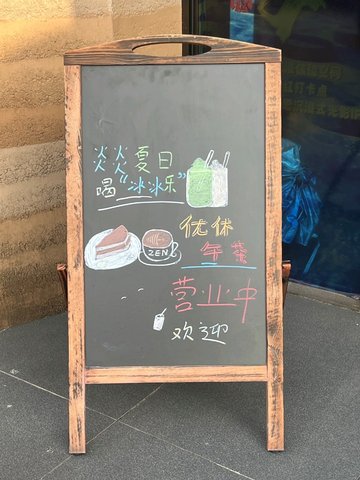 炎炎夏日
喝“冰冰乐”
ZEN
优休
午茶
营业中
欢迎
打卡点